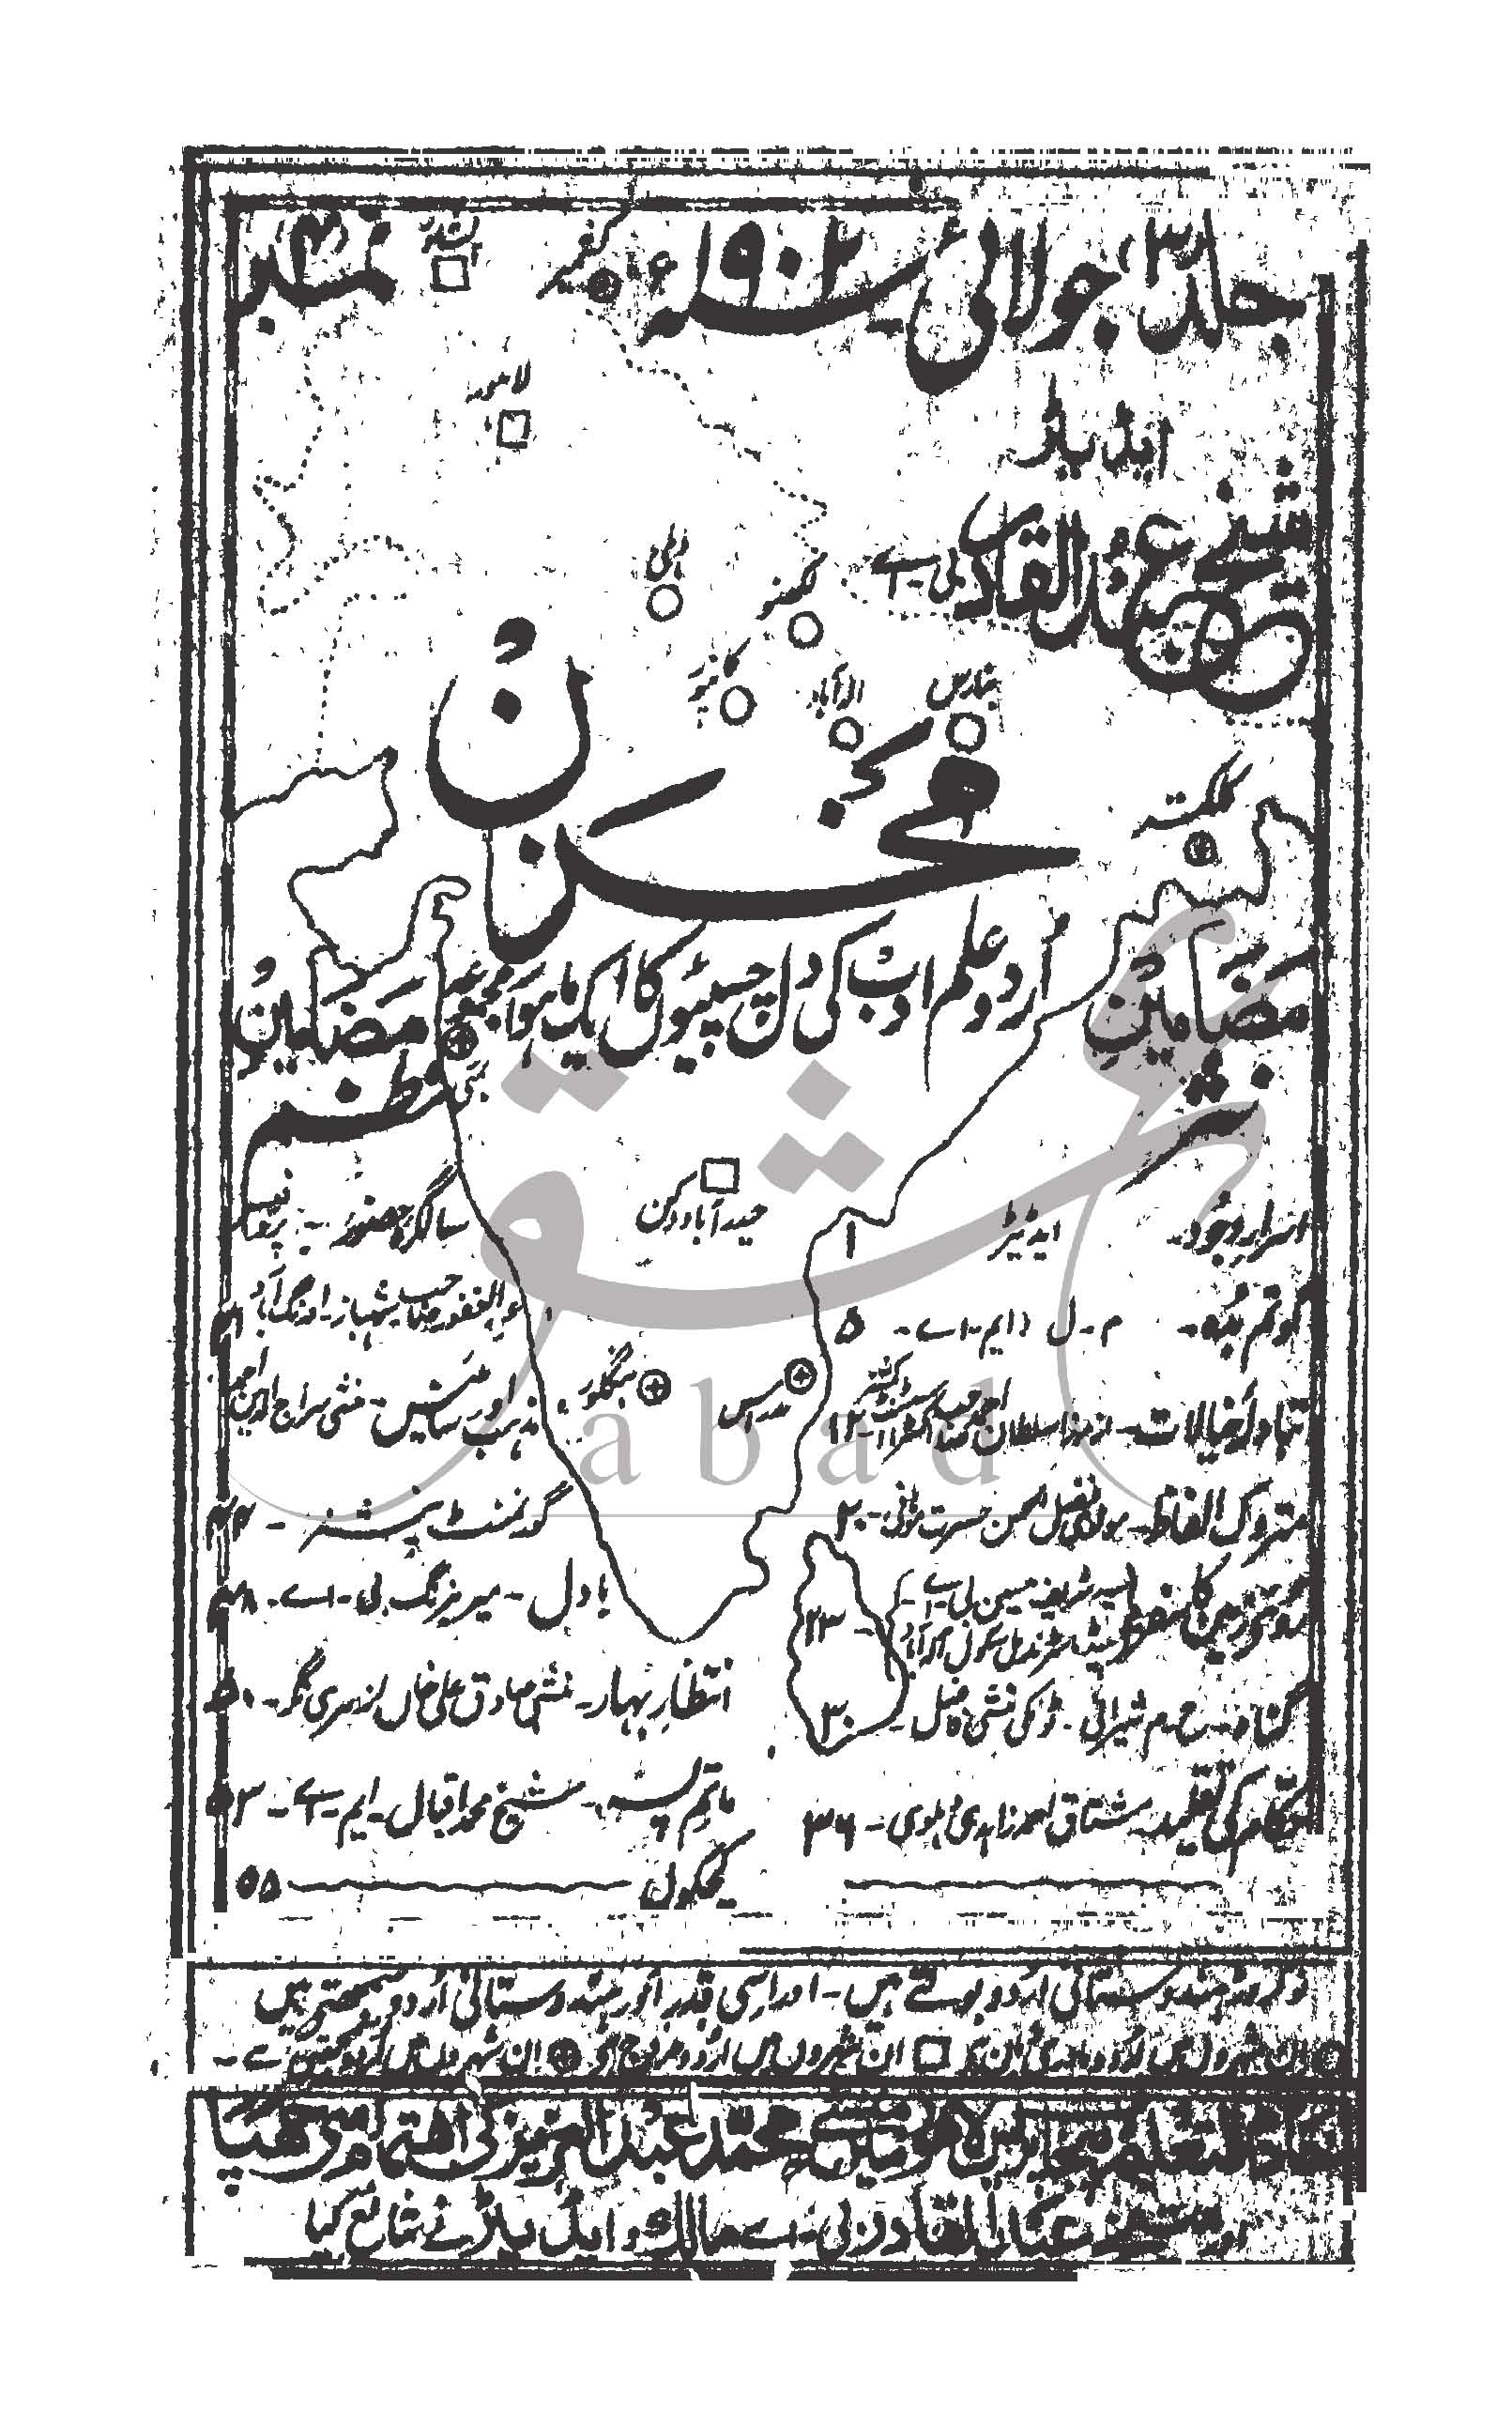 جلد ۳ جولائی سنہ ۱۹۰۲ء نمبر ۴
کشمیر
پشاور
لاہور
ایڈیٹر
شیخ عبدالقادر بی اے
دہلی
لکھنؤ
کانپور
الہ آباد
بنارس
کلکتہ
مخزن
اردو علم ادب کی دل چسپیوں کا ایک ماہوار مجموعہ
مضامین نثر
مضامین نظم
بمبئی
حیدرآباد دکن
بنگلور
مدراس
اسرار وجود۔ ایڈیٹر ۱
گوتم بدھ۔ م۔ ل (ایم۔ اے۔ ۵
تبادلہ خیالات۔ از مرزا سلطان احمد صاحب ۱۲
متروک الفاظ۔ مولوی فضل الحسن حسرت موہانی۔ ۲۰
سید شریف حسین بی۔ اے۔ ۲۳
گناہ۔ ع۔ م شیرانی۔ ٹونکی منشی فاضل۔ ۳۰
حکام کی تقلید۔ مشتاق احمد زاہدی دہلوی۔ ۳۶
سالگرہ حضور
عبدالغفور صاحب شہباز۔ اورنگ آباد ۴۱
مذہب اور سائنس۔ منشی سراج الدین احمد
گورنمنٹ پنشنر۔ ۴۴
بادل۔ میر نیرنگ بی۔ اے۔ ۴۸
انتظار بہار۔ منشی صادق علی خاں از سری نگر۔ ۵۰
ماتم پسر۔ شیخ محمد اقبال۔ ایم۔ اے۔ ۵۳
کچکول ۵۵
کروڑ ہندوستانی اردو بولتے ہیں۔ اور اسی قدر اور ہندوستانی اردو سمجھتے ہیں
ان شہروں میں اردو مادری زبان ہے ان شہروں میں اردو مروج ہے ان شہروں میں اردو سمجھتے ہے۔
خادم التعلیم پنجاب لاہور میں محمد عبدالعزیز کے اہتمام سے چھپا
اور شیخ عبدالقادر بی۔ اے مالک و ایڈیٹر نے شائع کیا
عشق
abad